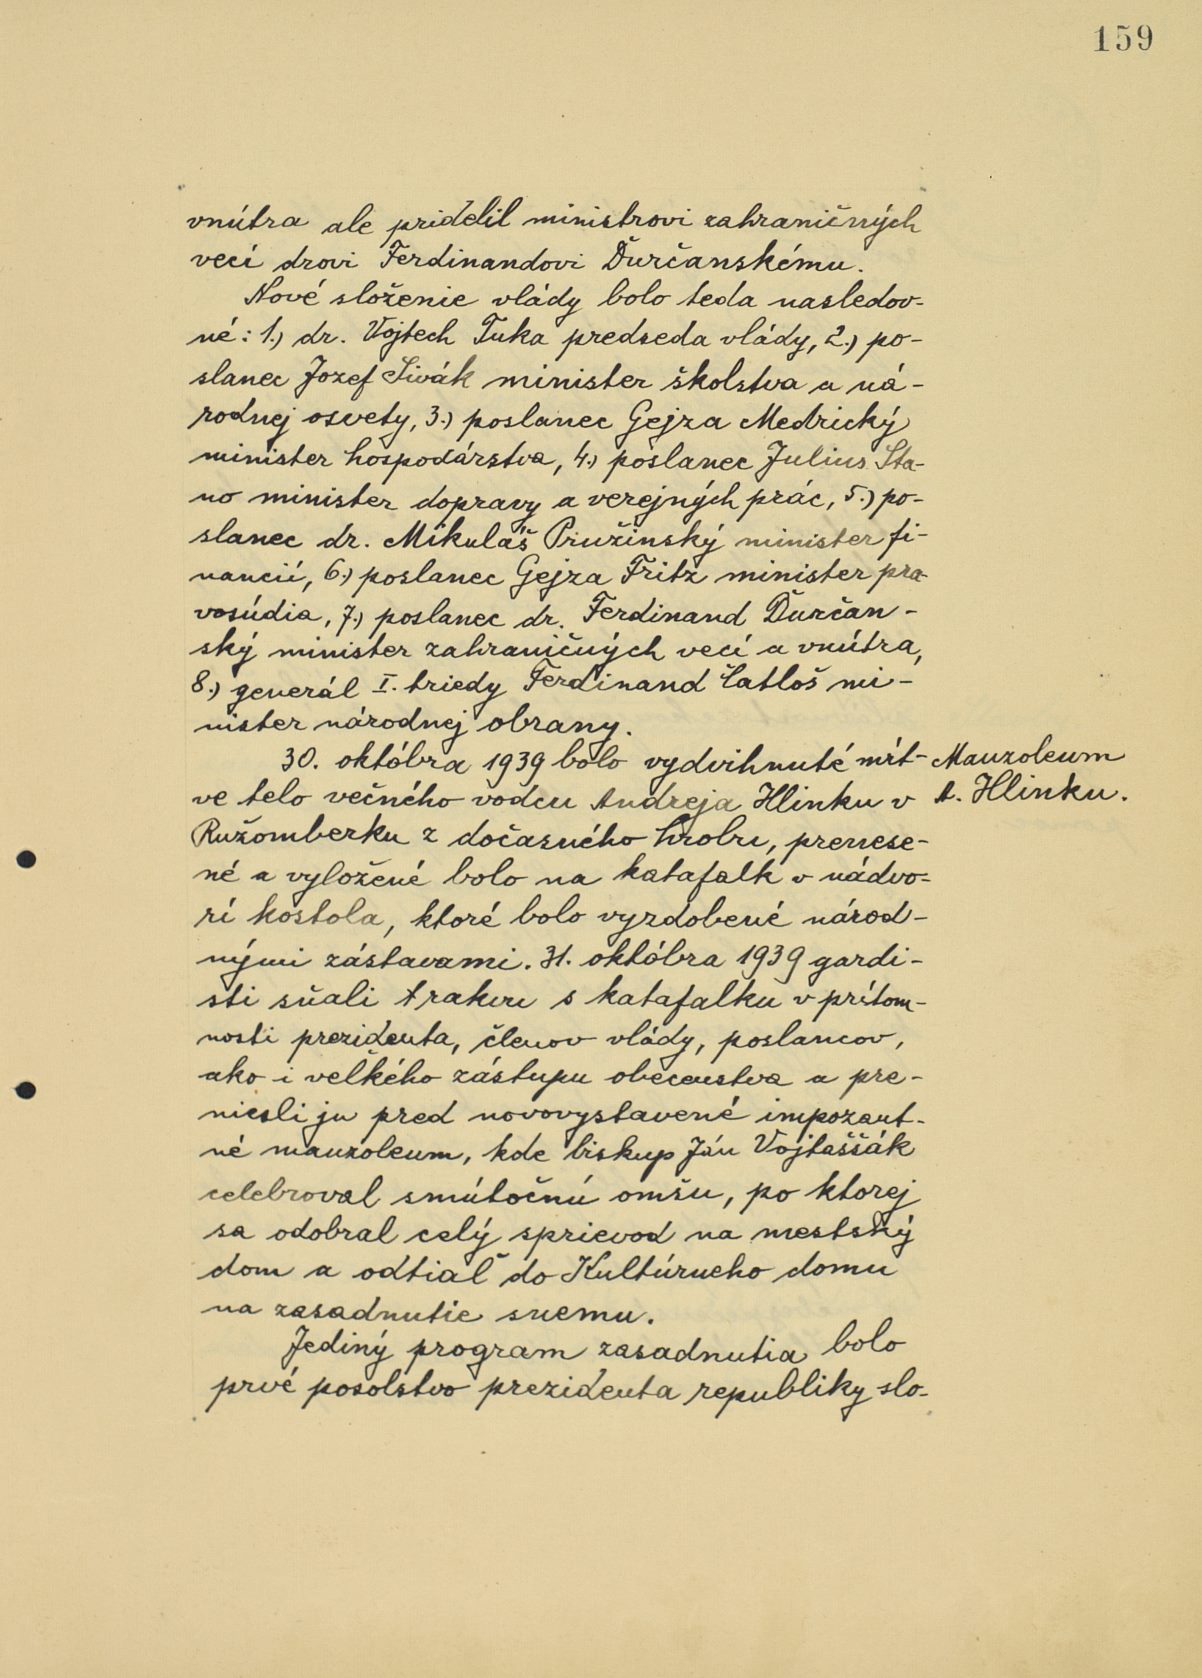 159
vnútra ale pridelil ministrovi zahraničných
vecí drovi Ferdinandovi Ďurčanskému.
Nové složenie vlády bolo teda nasledov-
né: 1.) dr. Vojtech Tuka predseda vlády, 2.) po-
slanec Jozef Sivák minister školstva a ná-
rodnej osvety, 3.) poslanec Gejza Medrický
minister hospodárstva, 4.) poslanec Julius Sta-
no minister dopravy a verejných prác, 5.) po-
slanec dr. Mikuláš Pružinský minister fi-
nancií, 6.) poslanec Gejza Fritz minister pra-
vosúdia, 7.) poslanec dr. Ferdinand Ďurčan-
ský minister zahraničných vecí a vnútra,
8.) generál I. triedy Ferdinand Čatloš mi-
nister národnej obrany.
30. októbra 1939 bolo vydvihnuté mŕt-
ve telo večného vodcu Andreja Hlinku v
Ružomberku z dočasného hrobu, prenese-
né a vyložené bolo na katafalk v nádvo-
rí kostola, ktoré bolo vyzdobené národ-
nými zástavami. 31. októbra 1939 gardi-
sti sňali trakvu s katafalku v prítom-
nosti prezidenta, členov vlády, poslancov,
ako i veľkého zástupu obecenstva a pre-
niesli ju pred novovystavené impozant-
né mauzoleum, kde biskup Ján Vojtaššák
celebroval smútočnú omšu, po ktorej
sa odobral celý sprievod na mestský
dom a odtiaľ do Kultúrneho domu
na zasadnutie snemu.
Jediný program zasadnutia bolo
prvé posolstvo prezidenta republiky slo-
Mauzoleum
A. Hlinku.